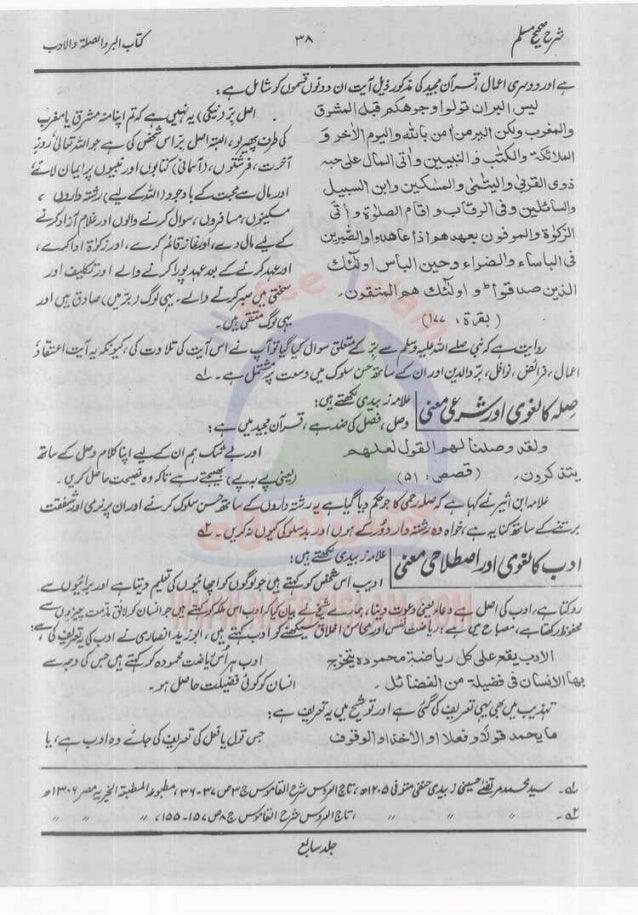 شرح صحیح مسلم
۳۸
کتاب البر والصلۃ والادب
ہے اور دوسری اعمال، قرآن مجید کی مذکور ذیل آیت ان دونوں قسموں کو شامل ہے:
لیس البر ان تولوا وجوهکم قبل المشرق
والمغرب ولکن البر من اٰمن بالله والیوم الاٰخر و
الملائکة والکتٰب و النبیین واٰتی المال علی حبه
ذوی القربٰی والیتٰمٰی والمسٰکین وابن السبیل
والسائلین وفی الرقاب و اقام الصلوٰة و اٰتی
الزکوٰة والموفون بعهدهم اذا عاهدوا والصٰبرین
فی الباساء والضراء وحین الباس اولٰئک
الذین صدقوا ط و اولٰئک هم المتقون۔
(بقرۃ: ۱۷۷)
اصل بِرّ (نیکی) یہ نہیں ہے کہ تم اپنا منہ مشرق یا مغرب
کی طرف پھیر لو، البتہ اصل بِرّ اس شخص کی ہے جو اللہ تعالیٰ، روز
آخرت، فرشتوں، (آسمانی) کتابوں اور نبیوں پر ایمان لائے
اور مال سے محبت کے باوجود (اللہ کے لیے) رشتہ داروں،
مسکینوں، مسافروں، سوال کرنے والوں اور غلام آزاد کرنے
کے لیے مال دے، اور نماز قائم کرے، اور زکوٰۃ ادا کرے،
اور عہد کرنے کے بعد عہد پورا کرنے والے اور تکلیف اور
سختی میں صبر کرنے والے۔ یہی لوگ (بِرّ میں) صادق ہیں اور
یہی لوگ متقی ہیں۔
روایت ہے کہ نبی صلے اللہ علیہ وسلم سے بِرّ کے متعلق سوال کیا گیا تو آپ نے اس آیت کی تلاوت کی، کیونکہ یہ آیت اعتقاد
اعمال، فرائض، نوافل، بِرّ والدین اور ان کے ساتھ حسن سلوک میں وسعت پر مشتمل ہے۔ لہ
صِلہ کا لغوی اور شرعی معنی
علامہ زبیدی لکھتے ہیں:
وصل، فصل کی ضد ہے، قرآن مجید میں ہے:
ولقد وصلنا لهم القول لعلهم
یتذکرون۔ (قصص: ۵۱)
اور بے شک ہم ان کے لیے اپنا کلام وصل کے ساتھ
(یعنی پے بہ پے) بھیجتے رہے تاکہ وہ نصیحت حاصل کریں۔
علامہ ابن اثیر نے کہا ہے کہ صلہ رحمی کا جو حکم دیا گیا ہے یہ رشتہ داروں کے ساتھ حسن سلوک کرنے اور ان پر نرمی اور شفقت
برتنے کے ساتھ کنایہ ہے، خواہ وہ رشتہ دار دور کے ہوں اور بدسلوکی کیوں نہ کریں۔ ۲ہ
ادب کا لغوی اور اصطلاحی معنی
علامہ زبیدی لکھتے ہیں:
ادیب اس شخص کو کہتے ہیں جو لوگوں کو اچھائیوں کی تعلیم دیتا ہے اور برائیوں سے
روکتا ہے، ادب کی اصل ہے دعا یعنی دعوت دینا، ہمارے شیخ نے بیان کیا کہ ادب اس ملکہ کو کہتے ہیں جو انسان کو لائق مذمت چیزوں سے
محفوظ رکھتا ہے، مصباح میں ہے: ریاضت نفس اور محاسن اخلاق سیکھنے کو ادب کہتے ہیں، ابوزید انصاری نے ادب کی یہ تعریف کی ہے:
الادب یقع علی کل ریاضة محمودة یتخرج
بها الانسان فی فضیلة من الفضائل۔
ادب ہر اس ریاضت محمودہ کو کہتے ہیں جس کی وجہ سے
انسان کو کوئی فضیلت حاصل ہو۔
تہذیب میں بھی یہی تعریف کی گئی ہے اور توشیح میں یہ تعریف ہے:
ما یحمد قولا و فعلا او الاخذ او الوقوف
جس قول یا فعل کی تعریف کی جائے وہ ادب ہے، یا
لہ۔ سید محمد مرتضیٰ حسینی زبیدی حنفی متوفی ۱۲۰۵ھ، تاج العروس شرح القاموس ج ۳ ص ۳۷-۳۶، مطبوعہ المطبعۃ الخیریہ مصر ۱۳۰۶ھ
۲ہ۔ " " " ، تاج العروس شرح القاموس ج ۸ ص ۱۵۷-۱۵۵، " " "
جلد سابع
WWW.NAFSEISLAM.COM